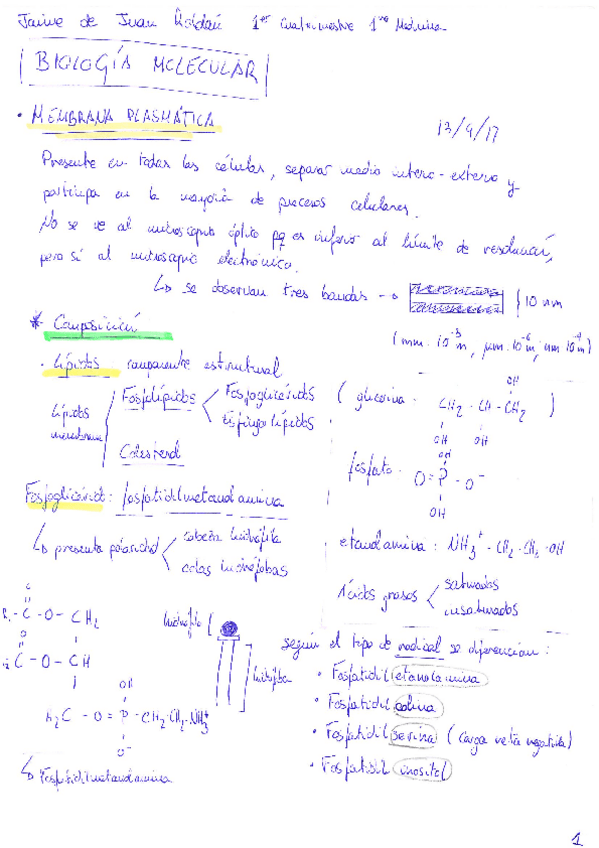 Jaime de Juan Roldán 1er Cuatrimestre 1ro Medicina
BIOLOGÍA MOLECULAR
• MEMBRANA PLASMÁTICA
13/9/17
Presente en todas las células, separar medio intero-externo y
participa en la mayoría de procesos celulares.
No se ve al microscopio óptico pq es inferior al límite de resolución,
pero sí al microscopio electrónico.
↳ se observan tres bandas → } 10 nm
(mm. 10⁻³m, µm. 10⁻⁶m, nm 10⁻⁹m)
* Composición
• Lípidos componente estructural
Lípidos membrana
Fosfolípidos < Fosfoglicéridos
Esfingolípidos
Colesterol
(glicerina · CH₂ - CH - CH₂ )
OH
OH OH
fosfato · O = P - O⁻
OH
OH
Fosfoglicérido: fosfatidiletanolamina
↳ presenta polaridad < cabeza hidrófila
colas hidrófobas
etanolamina : NH₃⁺ - CH₂ - CH₂ - OH
Ácidos grasos < saturados
insaturados
R₁ - C - O - CH₂
O
O
C - O - CH
OH
H₂C - O = P - CH₂ · CH₂ - NH₃⁺
O⁻
↳ Fosfatidiletanolamina
hidrófila [
] hidrófoba
según el tipo de radical se diferencian :
• Fosfatidil etanolamina
• Fosfatidil colina
• Fosfatidil serina (carga neta negativa)
• Fosfatidil inositol
1